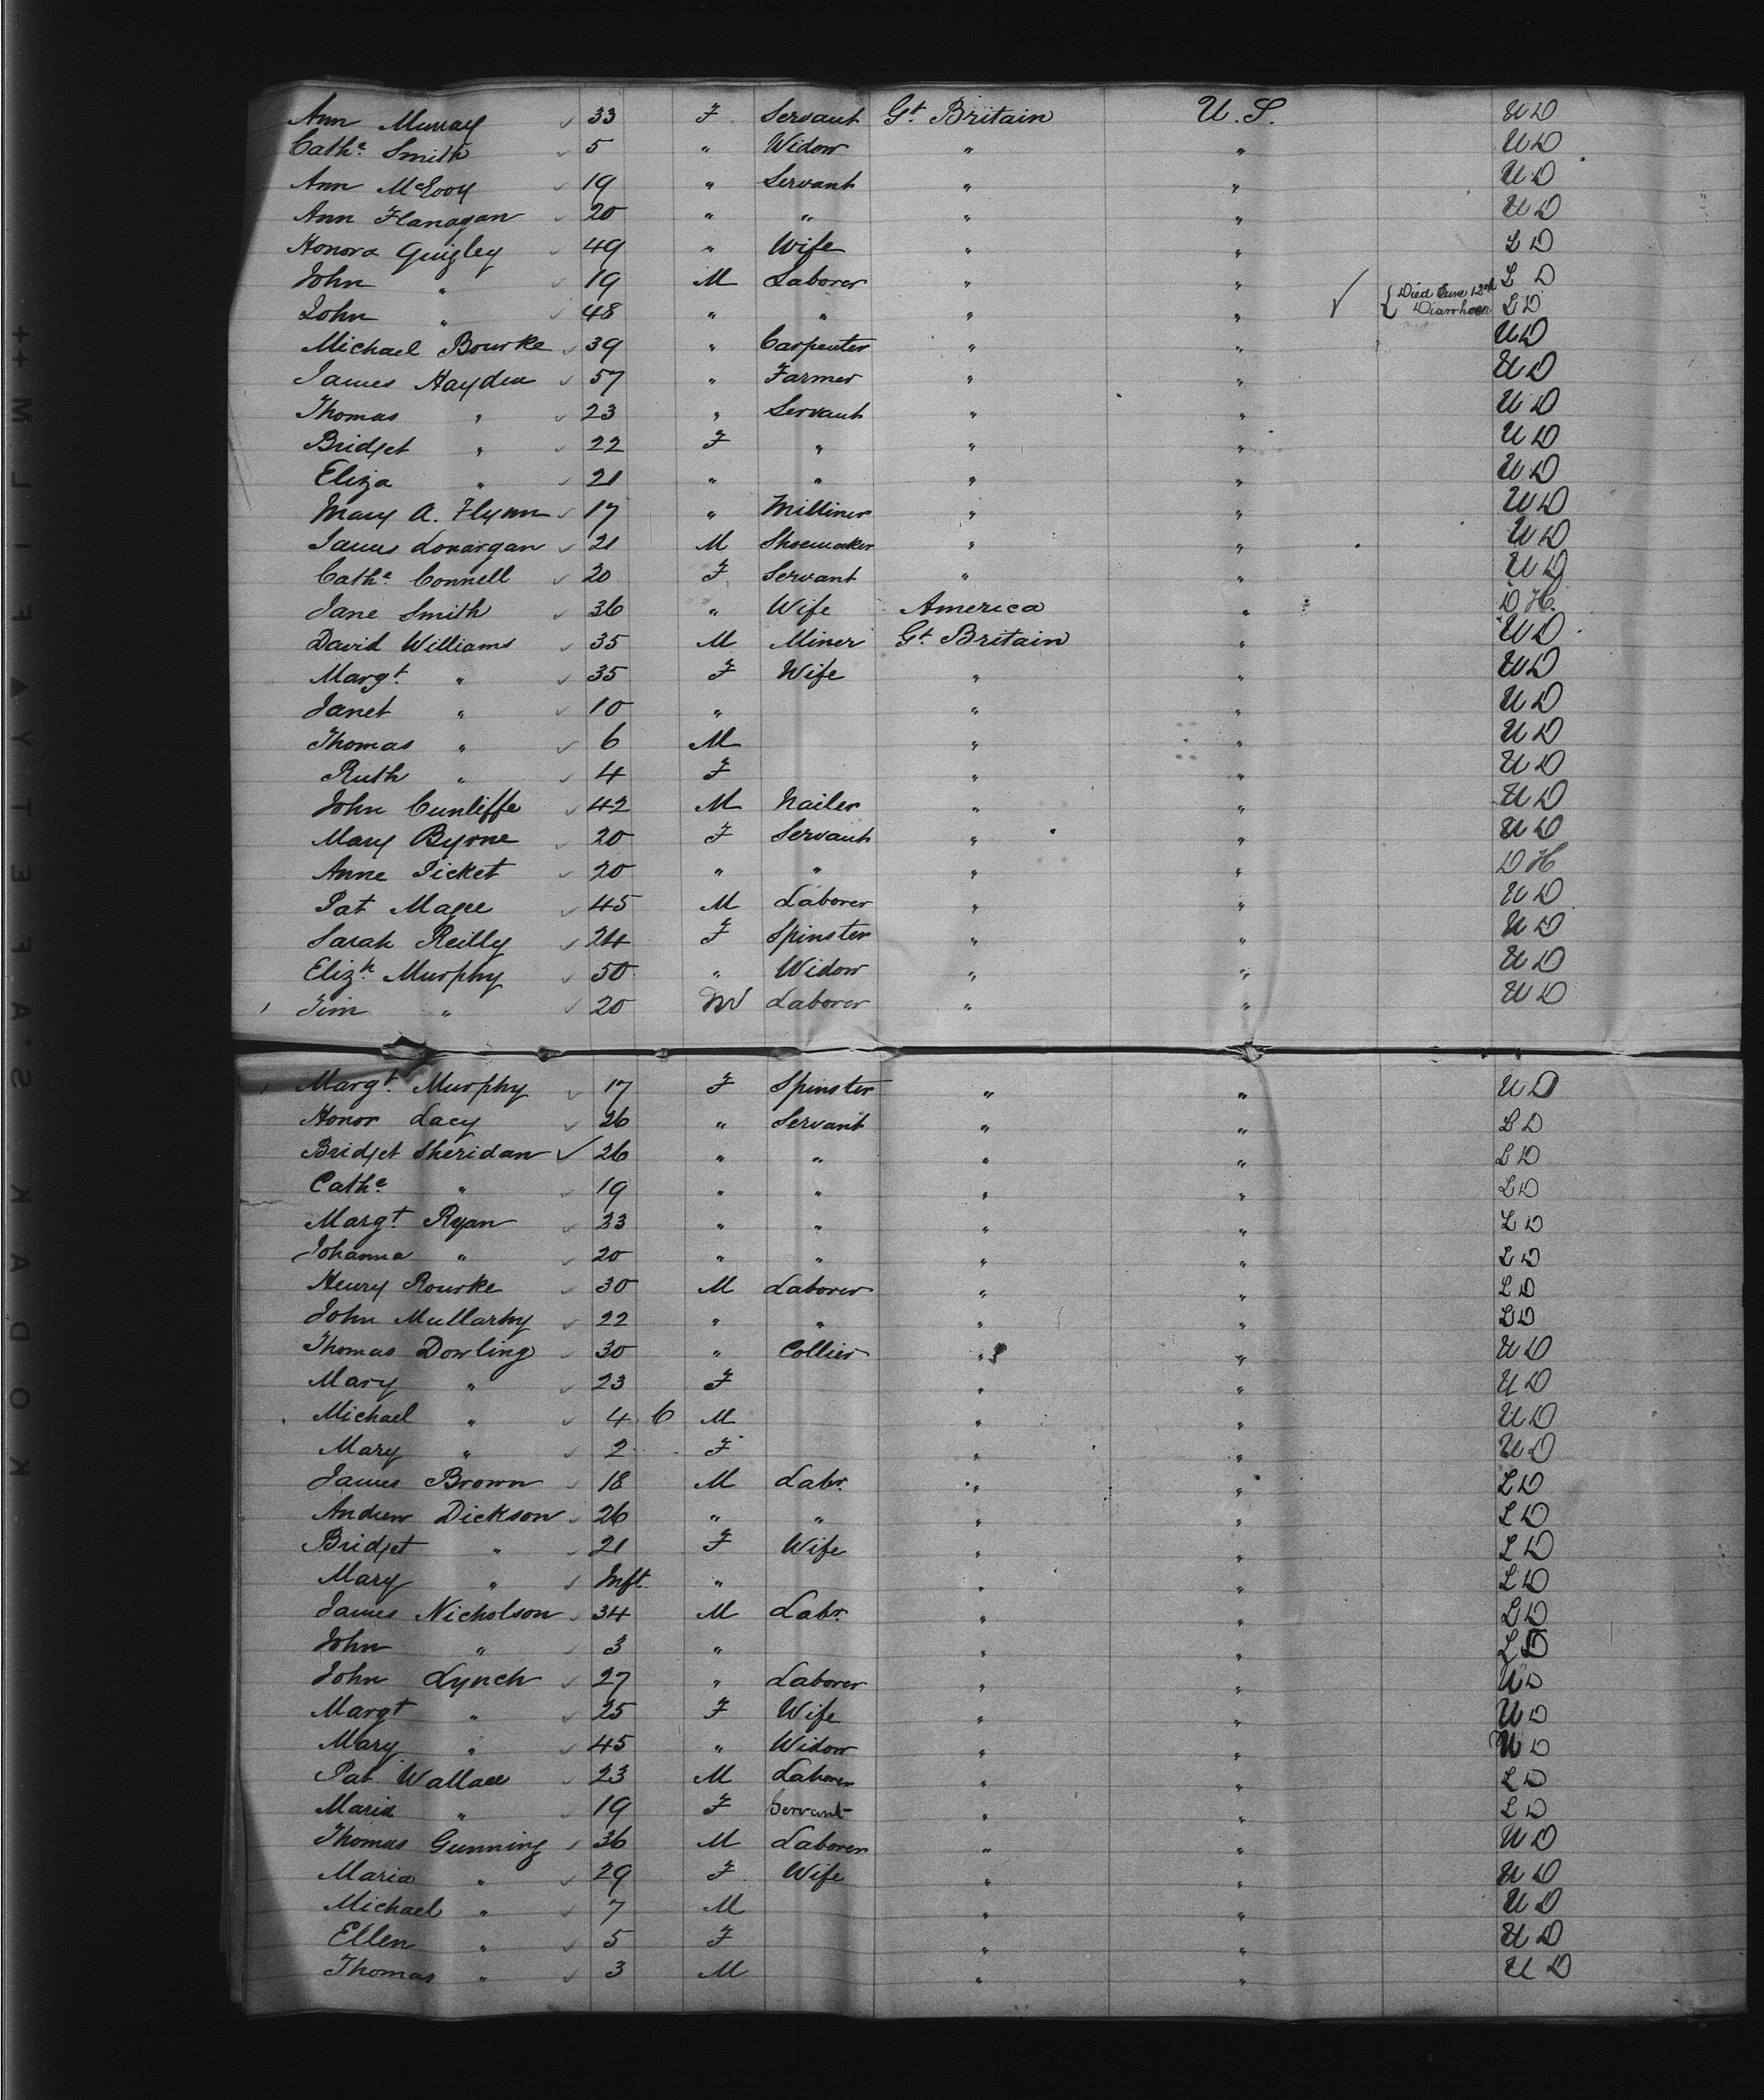 Ann Murray 33 F Servant Gt. Britain U.S. UD
Cathe. Smith 5 " Widow " " UD
Ann McEvoy 19 " Servant " " UD
Ann Flanagan 20 " " " " UD
Honora Quigley 49 " Wife " " LD
John " 19 M Laborer " " LD
John " 48 " " " " Died June 12th Diarrhoea LD
Michael Bourke 39 " Carpenter " " UD
James Hayden 57 " Farmer " " UD
Thomas " 23 " Servant " " UD
Bridget " 22 F " " " UD
Eliza " 21 " " " " UD
Mary A. Flynn 17 " Milliner " " UD
James Lonargan 21 M Shoemaker " " UD
Cathe. Connell 20 F Servant " " UD
Jane Smith 36 " Wife America " DH.
David Williams 35 M Miner Gt. Britain " UD
Margt. " 35 F Wife " " UD
Janet " 10 " " " UD
Thomas " 6 M " " UD
Ruth " 4 F " " UD
John Cunliffe 42 M Nailer " " UD
Mary Byrne 20 F Servant " " UD
Anne Picket 20 " " " " DH
Pat Magee 45 M Laborer " " UD
Sarah Reilly 24 F Spinster " " UD
Elizh. Murphy 50 " Widow " " UD
Jim " 20 M Laborer " " UD
Margt. Murphy 17 F Spinster " " UD
Honor Lacy 26 " Servant " " LD
Bridget Sheridan 26 " " " " LD
Cathe. " 19 " " " " LD
Margt. Ryan 23 " " " " LD
Johanna " 20 " " " " LD
Henry Rourke 30 M Laborer " " LD
John Mullarky 22 " " " " LD
Thomas Dowling 30 " Collier " " UD
Mary " 23 F " " UD
Michael " 4 6 M " " UD
Mary " 2 F " " UD
James Brown 18 M Labr. " " LD
Andrew Dickson 26 " " " " LD
Bridget " 21 F Wife " " LD
Mary " Inft. " " " LD
James Nicholson 34 M Labr. " " LD
John " 3 " " " LD
John Lynch 27 " Laborer " " UD
Margt " 25 F Wife " " UD
Mary " 45 " Widow " " UD
Pat Wallace 23 M Laborer " " LD
Maria " 19 F Servant " " LD
Thomas Gunning 36 M Laborer " " UD
Maria " 29 F Wife " " UD
Michael " 7 M " " UD
Ellen " 5 F " " UD
Thomas " 3 M " " UD
KODAK·SAFETY▲FILM++